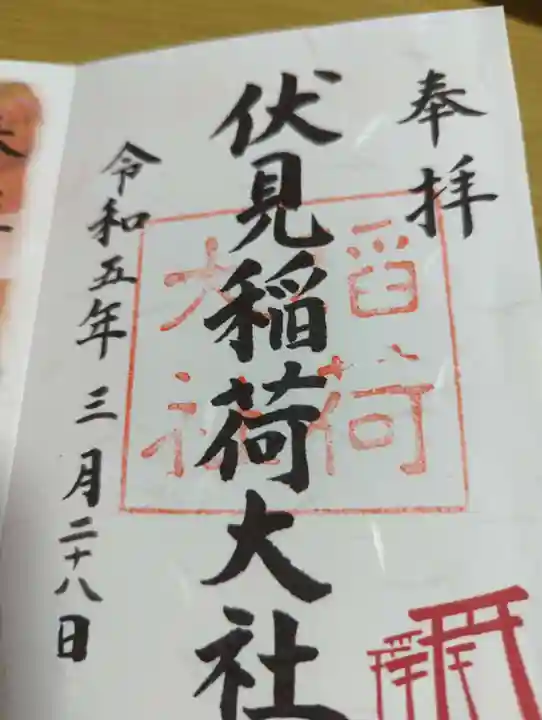 奉拝
伏見稲荷大社
稲荷
大社
令和五年三月二十八日